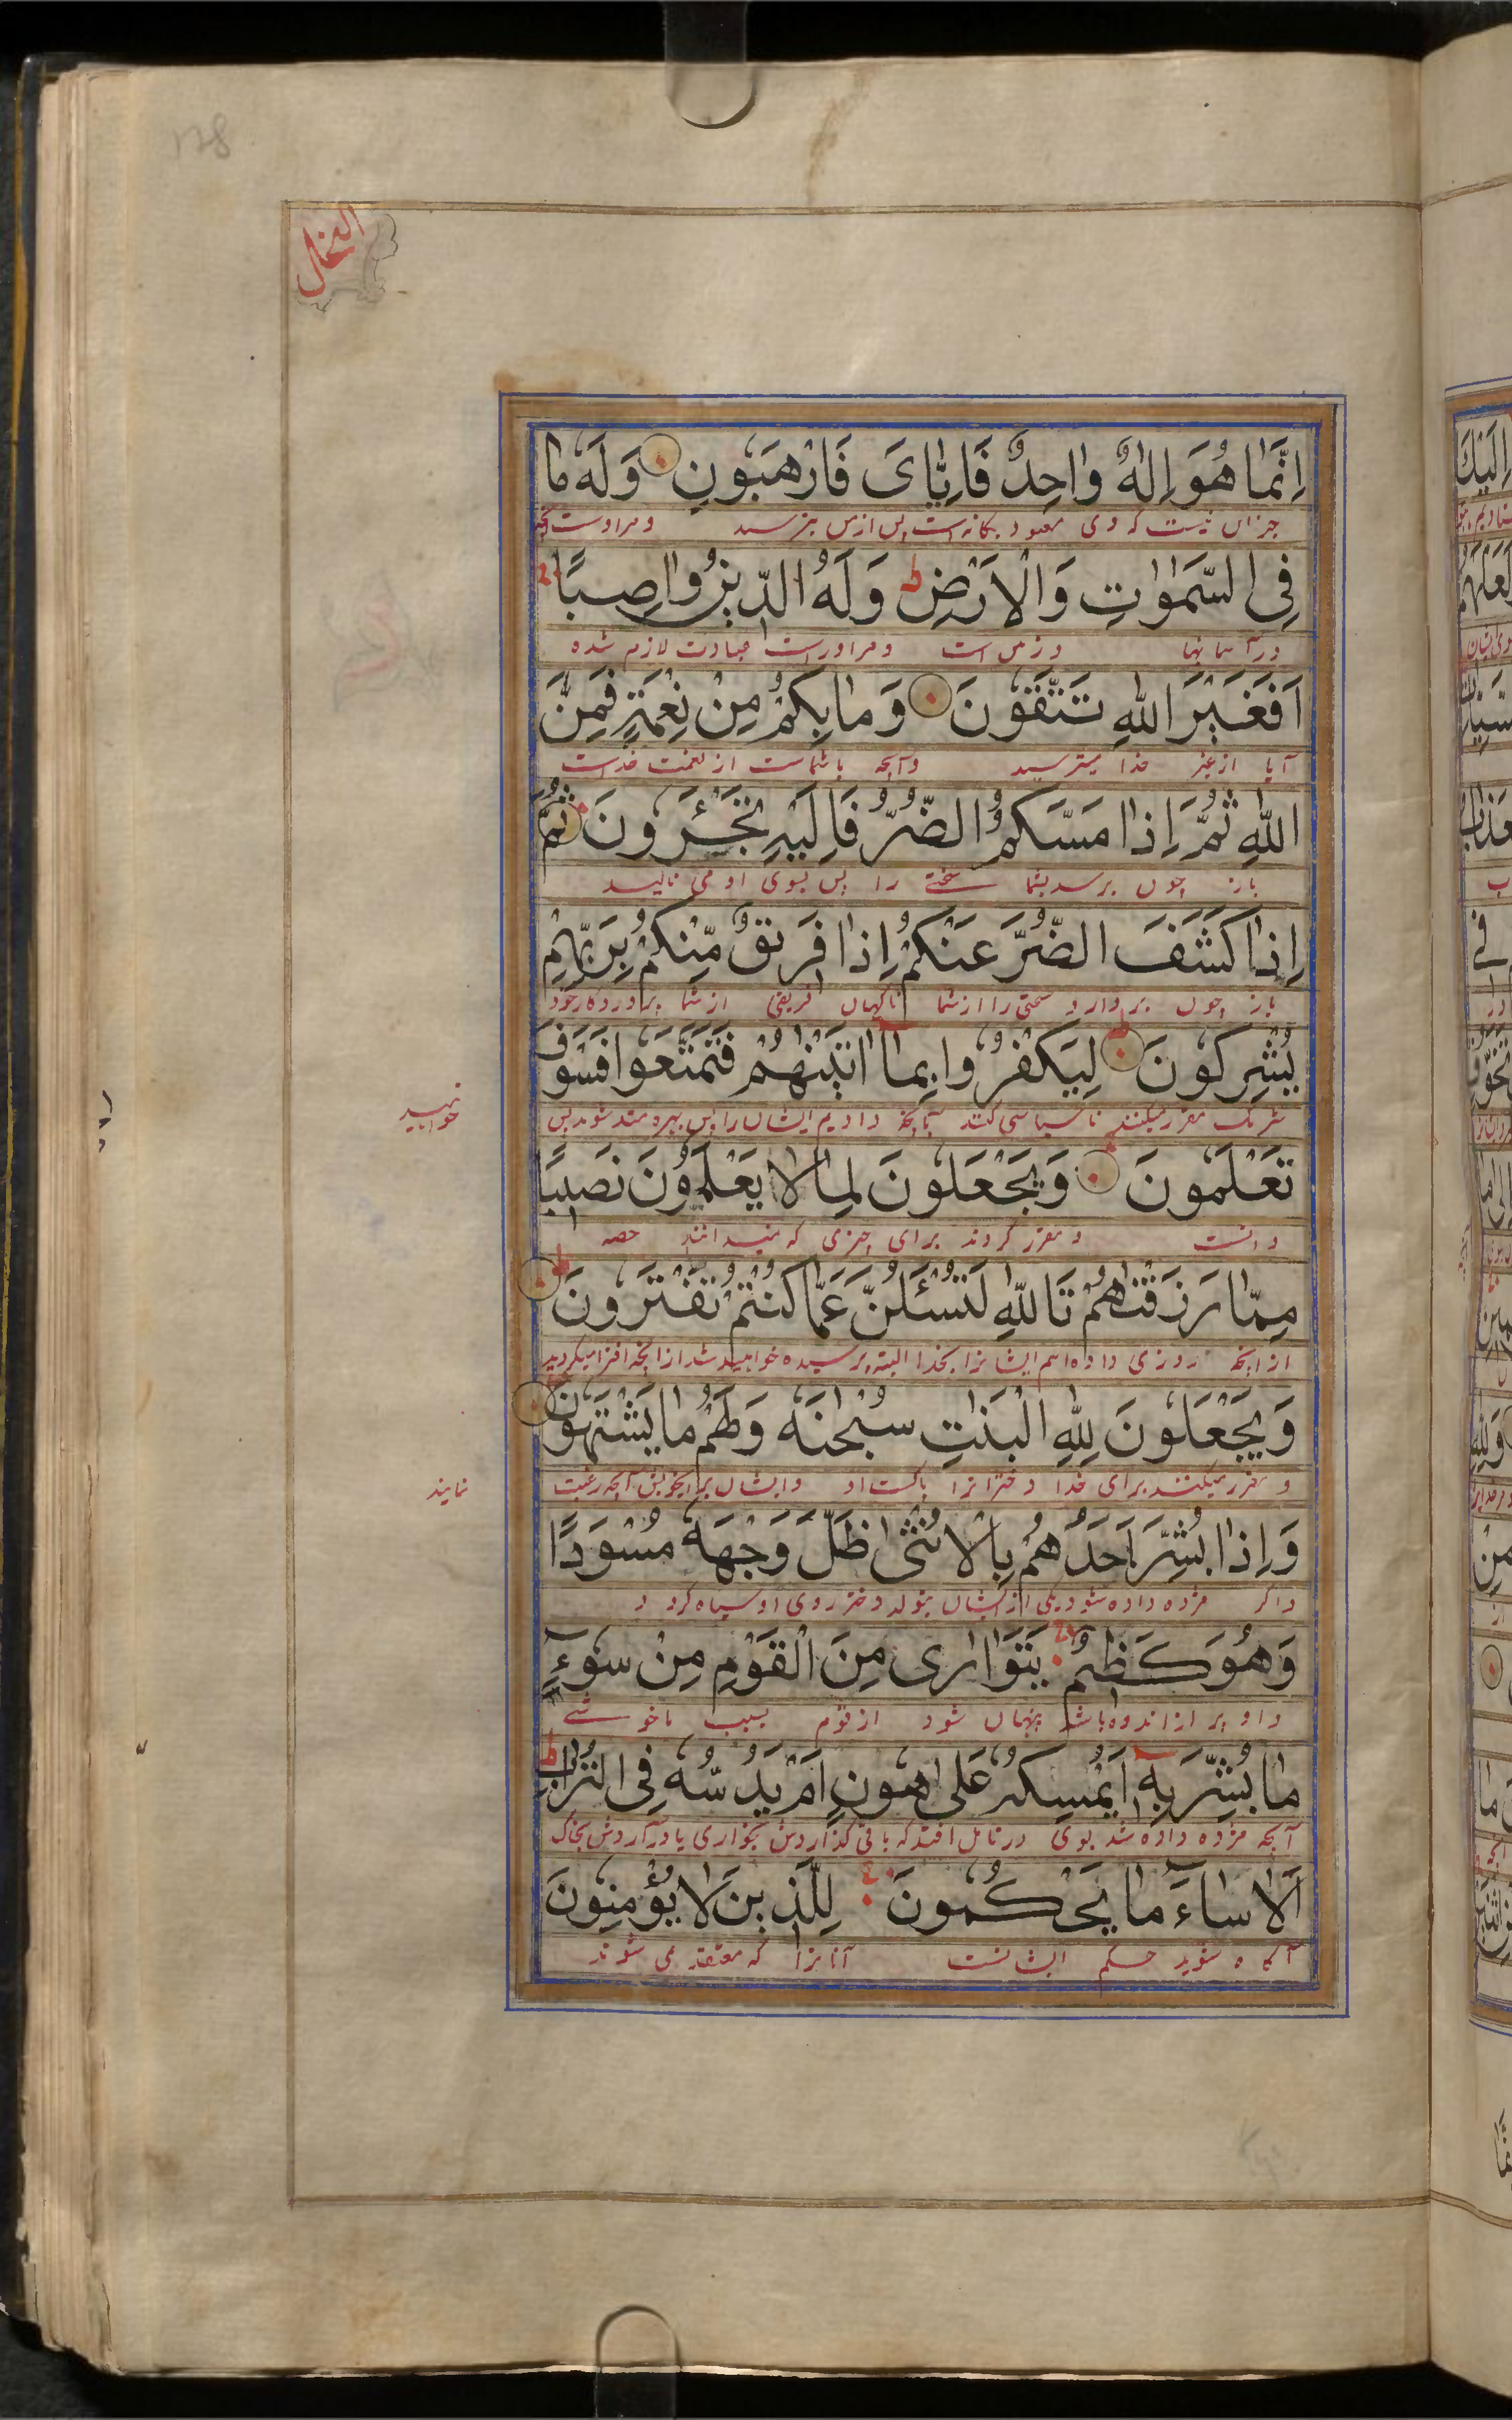 128
النحل
اِنَّمَا هُوَ اِلٰهٌ وَاحِدٌ فَاِيَّايَ فَارْهَبُونِ وَلَهٗ مَا
جز این نیست که وی معبود یگانه است پس از من بترسید و مر اوست آنچه
فِي السَّمٰوٰتِ وَالْاَرْضِ ط وَلَهُ الدِّينُ وَاصِبًا
در آسمانها و زمین است و مر اوراست عبادت لازم شده
اَفَغَيْرَ اللّٰهِ تَتَّقُونَ وَمَا بِكُمْ مِنْ نِعْمَةٍ فَمِنَ
آیا از غیر خدا میترسید و آنچه با شماست از نعمت خداست
اللّٰهِ ثُمَّ اِذَا مَسَّكُمُ الضُّرُّ فَاِلَيْهِ تَجْـَٔرُونَ ثُمَّ
باز چون برسد بشما سختی را پس بسوی او می نالید
اِذَا كَشَفَ الضُّرَّ عَنْكُمْ اِذَا فَرِيقٌ مِّنْكُمْ بِرَبِّهِمْ
باز چون بردارد سختی را از شما ناگهان فریقی از شما بپروردگار خود
يُشْرِكُونَ لِيَكْفُرُوا بِمَا اٰتَيْنٰهُمْ فَتَمَتَّعُوا فَسَوْفَ
شریک مقرر میکنند تا سپاسی کنند بآنچه دادیم ایشان را پس بهره مند شوید پس
خواهید
تَعْلَمُونَ وَيَجْعَلُونَ لِمَا لَا يَعْلَمُونَ نَصِيبًا
دانست و مقرر کردند برای چیزی که نمیدانند حصه
مِمَّا رَزَقْنٰهُمْ تَاللّٰهِ لَتُسْـَٔلُنَّ عَمَّا كُنْتُمْ تَفْتَرُونَ
از آنچه روزی داده ایم ایشانرا بخدا البته پرسیده خواهید شد از آنچه افترا میکردید
وَيَجْعَلُونَ لِلّٰهِ الْبَنٰتِ سُبْحٰنَهٗ وَلَهُمْ مَا يَشْتَهُونَ
و مقرر میکنند برای خدا دخترانرا پاکست او و ایشان برای خویش آنچه رغبت
نمایند
وَاِذَا بُشِّرَ اَحَدُهُمْ بِالْاُنْثٰى ظَلَّ وَجْهُهٗ مُسْوَدًّا
و اگر مژده داده شود یکی از ایشان بتولد دختر روی او سیاه گردد
وَهُوَ كَظِيمٌ يَتَوَارٰى مِنَ الْقَوْمِ مِنْ سُوٓءِ
و او پر از اندوه باشد پنهان شود از قوم بسبب ناخوشی
مَا بُشِّرَ بِهٖٓ اَيُمْسِكُهٗ عَلٰى هُونٍ اَمْ يَدُسُّهٗ فِي التُّرَابِ ط
آنچه مژده داده شد بوی در تامل افتد که باقی گذاردش بخواری یا در آردش بخاک
اَلَا سَاءَ مَا يَحْكُمُونَ لِلَّذِينَ لَا يُؤْمِنُونَ
آگاه شوید حکم ایشانست آنانرا که معتقد می شوند